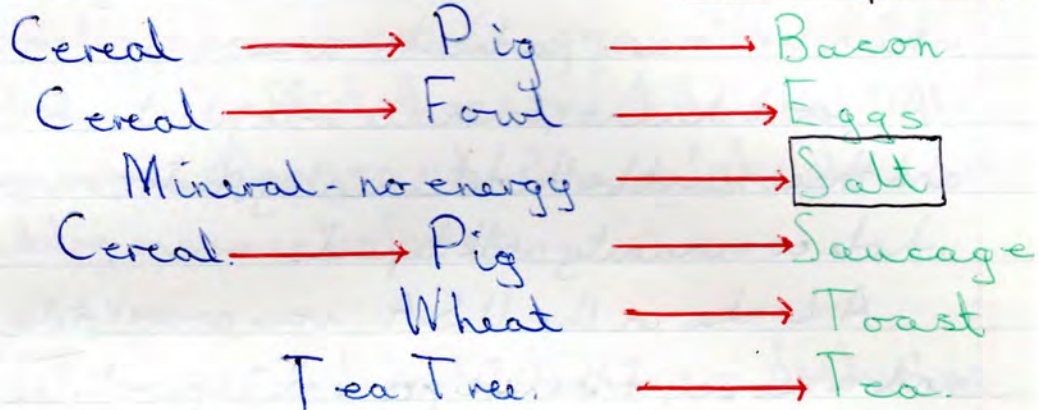 Cereal → Pig → Bacon
Cereal → Fowl → Eggs
Mineral - no energy → Salt
Cereal. → Pig → Saucage
Wheat → Toast
Tea Tree. → Tea.